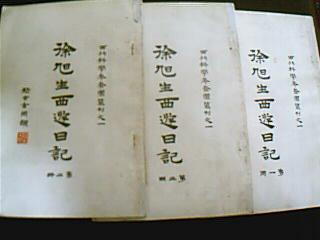 西北科學考查團叢刊之一
徐旭生西遊日記
第一冊
西北科學考查團叢刊之一
徐旭生西遊日記
第二冊
西北科學考查團叢刊之一
徐旭生西遊日記
第三冊
疑古玄同題